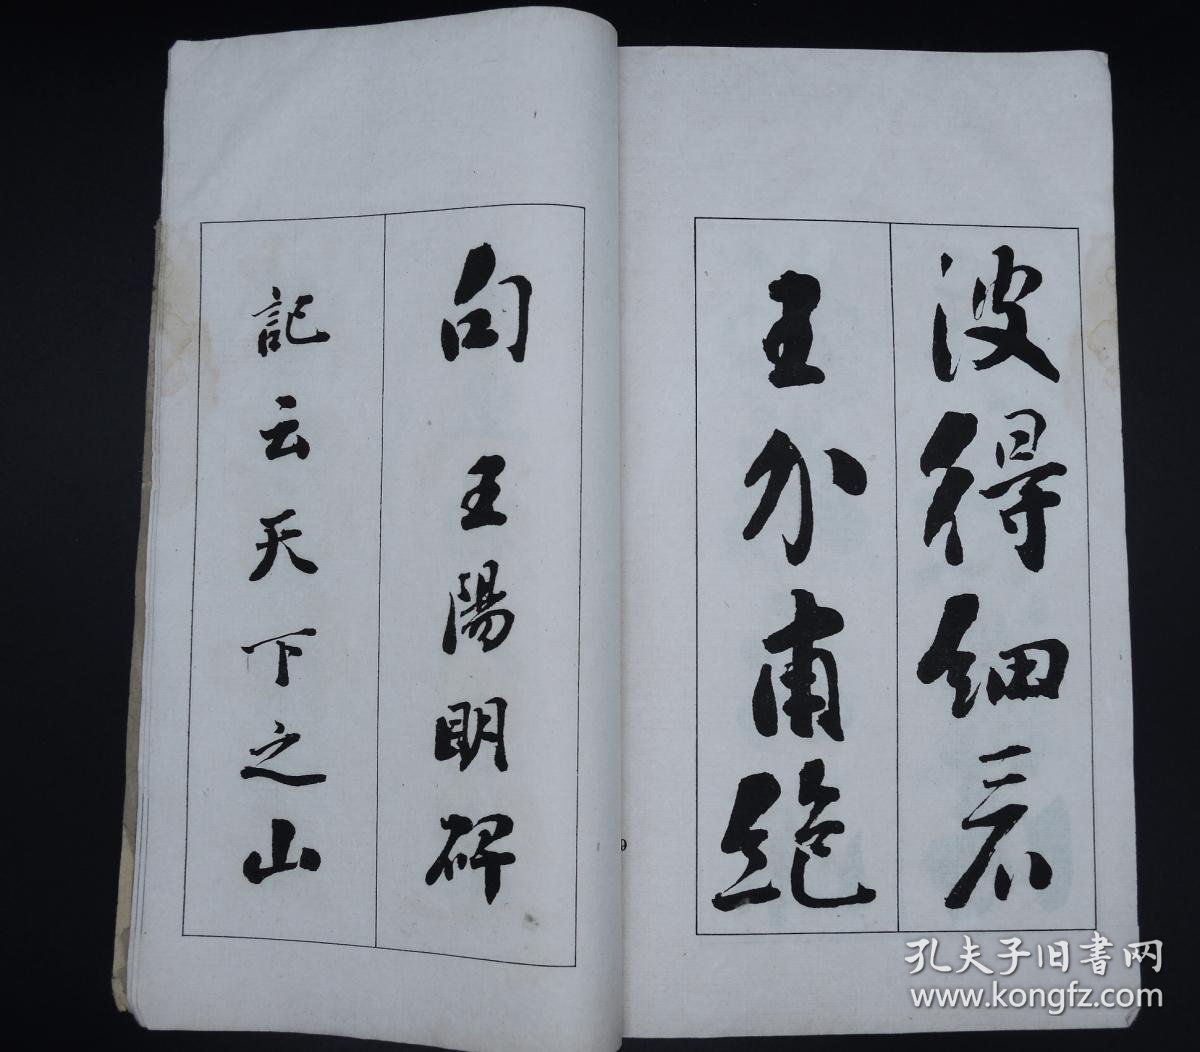 波得細
王介甫絕
句 王陽明碑
記云天下之山
孔夫子旧書网
www.kongfz.com